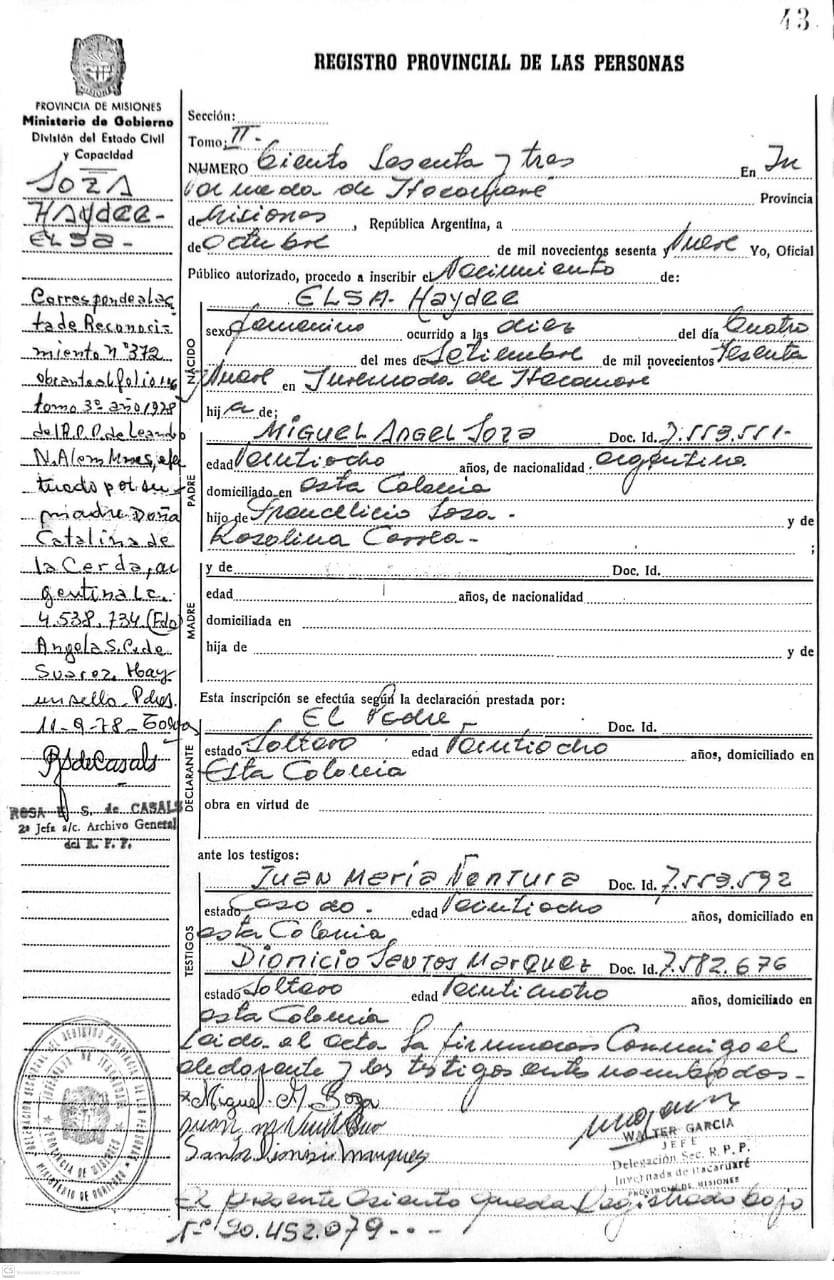 43
REGISTRO PROVINCIAL DE LAS PERSONAS
PROVINCIA DE MISIONES
Ministerio de Gobierno
División del Estado Civil
y Capacidad
SOZA
HAydee-
ELSA-
Corresponde al ac
ta de Reconoci-
miento nº 372
obrante al folio 116
tomo 3º año 1978
del R.P.P. de Leandro
N. Alem Mnes, efec
tuado por su
madre Doña
Catalina de
la Cerda, ar
gentina L.C.
4.538.734 (Fdo)
Angela S. C. de
Suarez. Hay
un sello. Pdas.
11-9-78-
RSdeCasals
ROSA S. de CASALS
2ª Jefa a/c. Archivo General
del R. P. P.
Sección:
Tomo: II-
NUMERO Ciento Sesenta y tres En In
vernada de Itacaruaré Provincia
de Misiones, República Argentina, a
de Octubre de mil novecientos sesenta y Nueve Yo, Oficial
Público autorizado, procedo a inscribir el Nacimiento de:
NACIDO
ELSA-Haydee
sexo femenino ocurrido a las diez del día Cuatro
del mes de Setiembre de mil novecientos Sesenta
Nueve en Invernada de Itacaruaré
hij a de;
PADRE
MIGUEL ANGEL SOZA Doc. Id. 7.553.551-
edad Veintiocho años, de nacionalidad argentina.
domiciliado en esta Colonia
hijo de Francelicio Sosa- y de
Rosolina Correa- ;
MADRE
y de Doc. Id.
edad años, de nacionalidad
domiciliada en
hija de y de
Esta inscripción se efectúa según la declaración prestada por:
DECLARANTE
EL Padre- Doc. Id.
estado Soltero edad Veintiocho años, domiciliado en
Esta Colonia
obra en virtud de
ante los testigos:
TESTIGOS
Juan María Ventura Doc. Id. 7.553.592
estado Casado. edad Veintiocho años, domiciliado en
esta Colonia
Dionicio Santos Marquez Doc. Id. 7.582.676
estado Soltero edad Veinticuatro años, domiciliado en
esta Colonia
Leida el acta la firmaron Conmigo el
declarante y los testigos antes nombrados-
Miguel A. Soza
Santos Dionicio Marquez
WALTER GARCIA
JEFE
Delegación Sec. R. P. P.
Invernada de Itacaruaré
PROVINCIA DE MISIONES
El presente Asiento queda Registrado bajo
Nº 20.452.079---